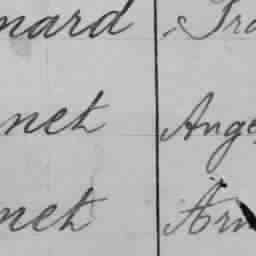 nard Fra
net Ange
net Arn